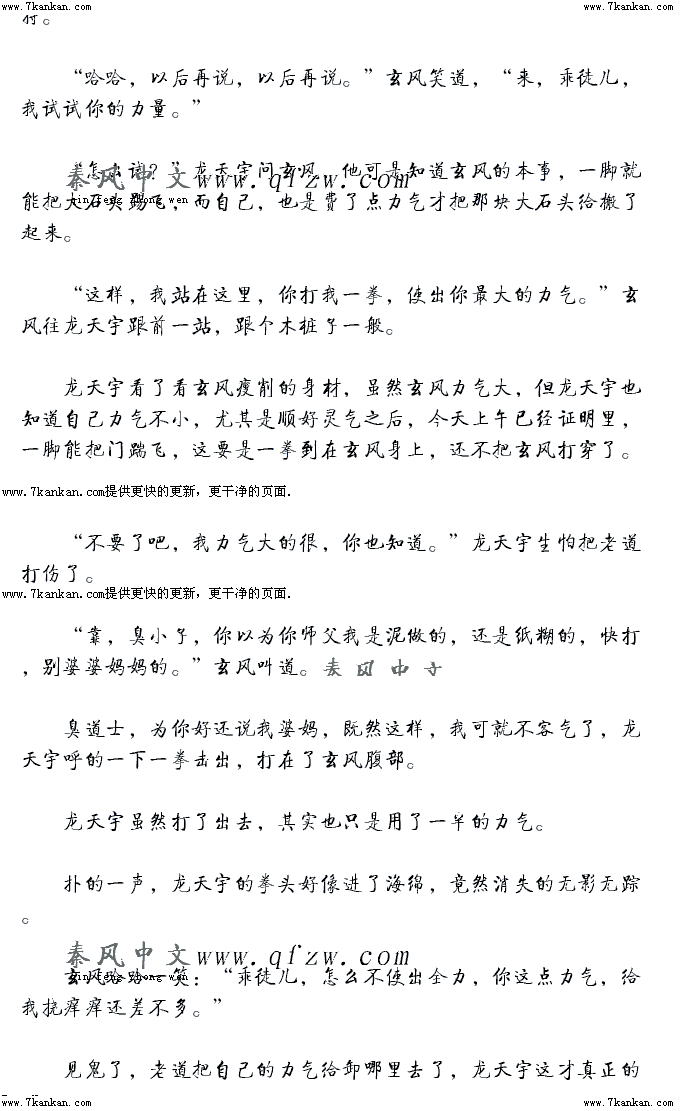 www.7kankan.com www.7kankan.com
行。
“哈哈，以后再说，以后再说。”玄风笑道，“来，乖徒儿，
我试试你的力量。”
“怎么试？”龙天宇问玄风，他可是知道玄风的本事，一脚就
秦风中文www.qfzw.com
能把大石头踢飞，而自己，也是费了点力气才把那块大石头给搬了
qin feng zhong wen
起来。
“这样，我站在这里，你打我一拳，使出你最大的力气。”玄
风往龙天宇跟前一站，跟个木桩子一般。
龙天宇看了看玄风瘦削的身材，虽然玄风力气大，但龙天宇也
知道自己力气不小，尤其是顺好灵气之后，今天上午已经证明里，
一脚能把门踹飞，这要是一拳到在玄风身上，还不把玄风打穿了。
www.7kankan.com提供更快的更新，更干净的页面.
“不要了吧，我力气大的很，你也知道。”龙天宇生怕把老道
打伤了。
www.7kankan.com提供更快的更新，更干净的页面.
“靠，臭小子，你以为你师父我是泥做的，还是纸糊的，快打
，别婆婆妈妈的。”玄风叫道。
臭道士，为你好还说我婆妈，既然这样，我可就不客气了，龙
天宇呼的一下一拳击出，打在了玄风腹部。
龙天宇虽然打了出去，其实也只是用了一半的力气。
扑的一声，龙天宇的拳头好像进了海绵，竟然消失的无影无踪
。
秦风中文www.qfzw.com
玄风哈哈一笑：“乖徒儿，怎么不使出全力，你这点力气，给
qin feng zhong wen
我挠痒痒还差不多。”
见鬼了，老道把自己的力气给卸哪里去了，龙天宇这才真正的
www.7kankan.com www.7kankan.com